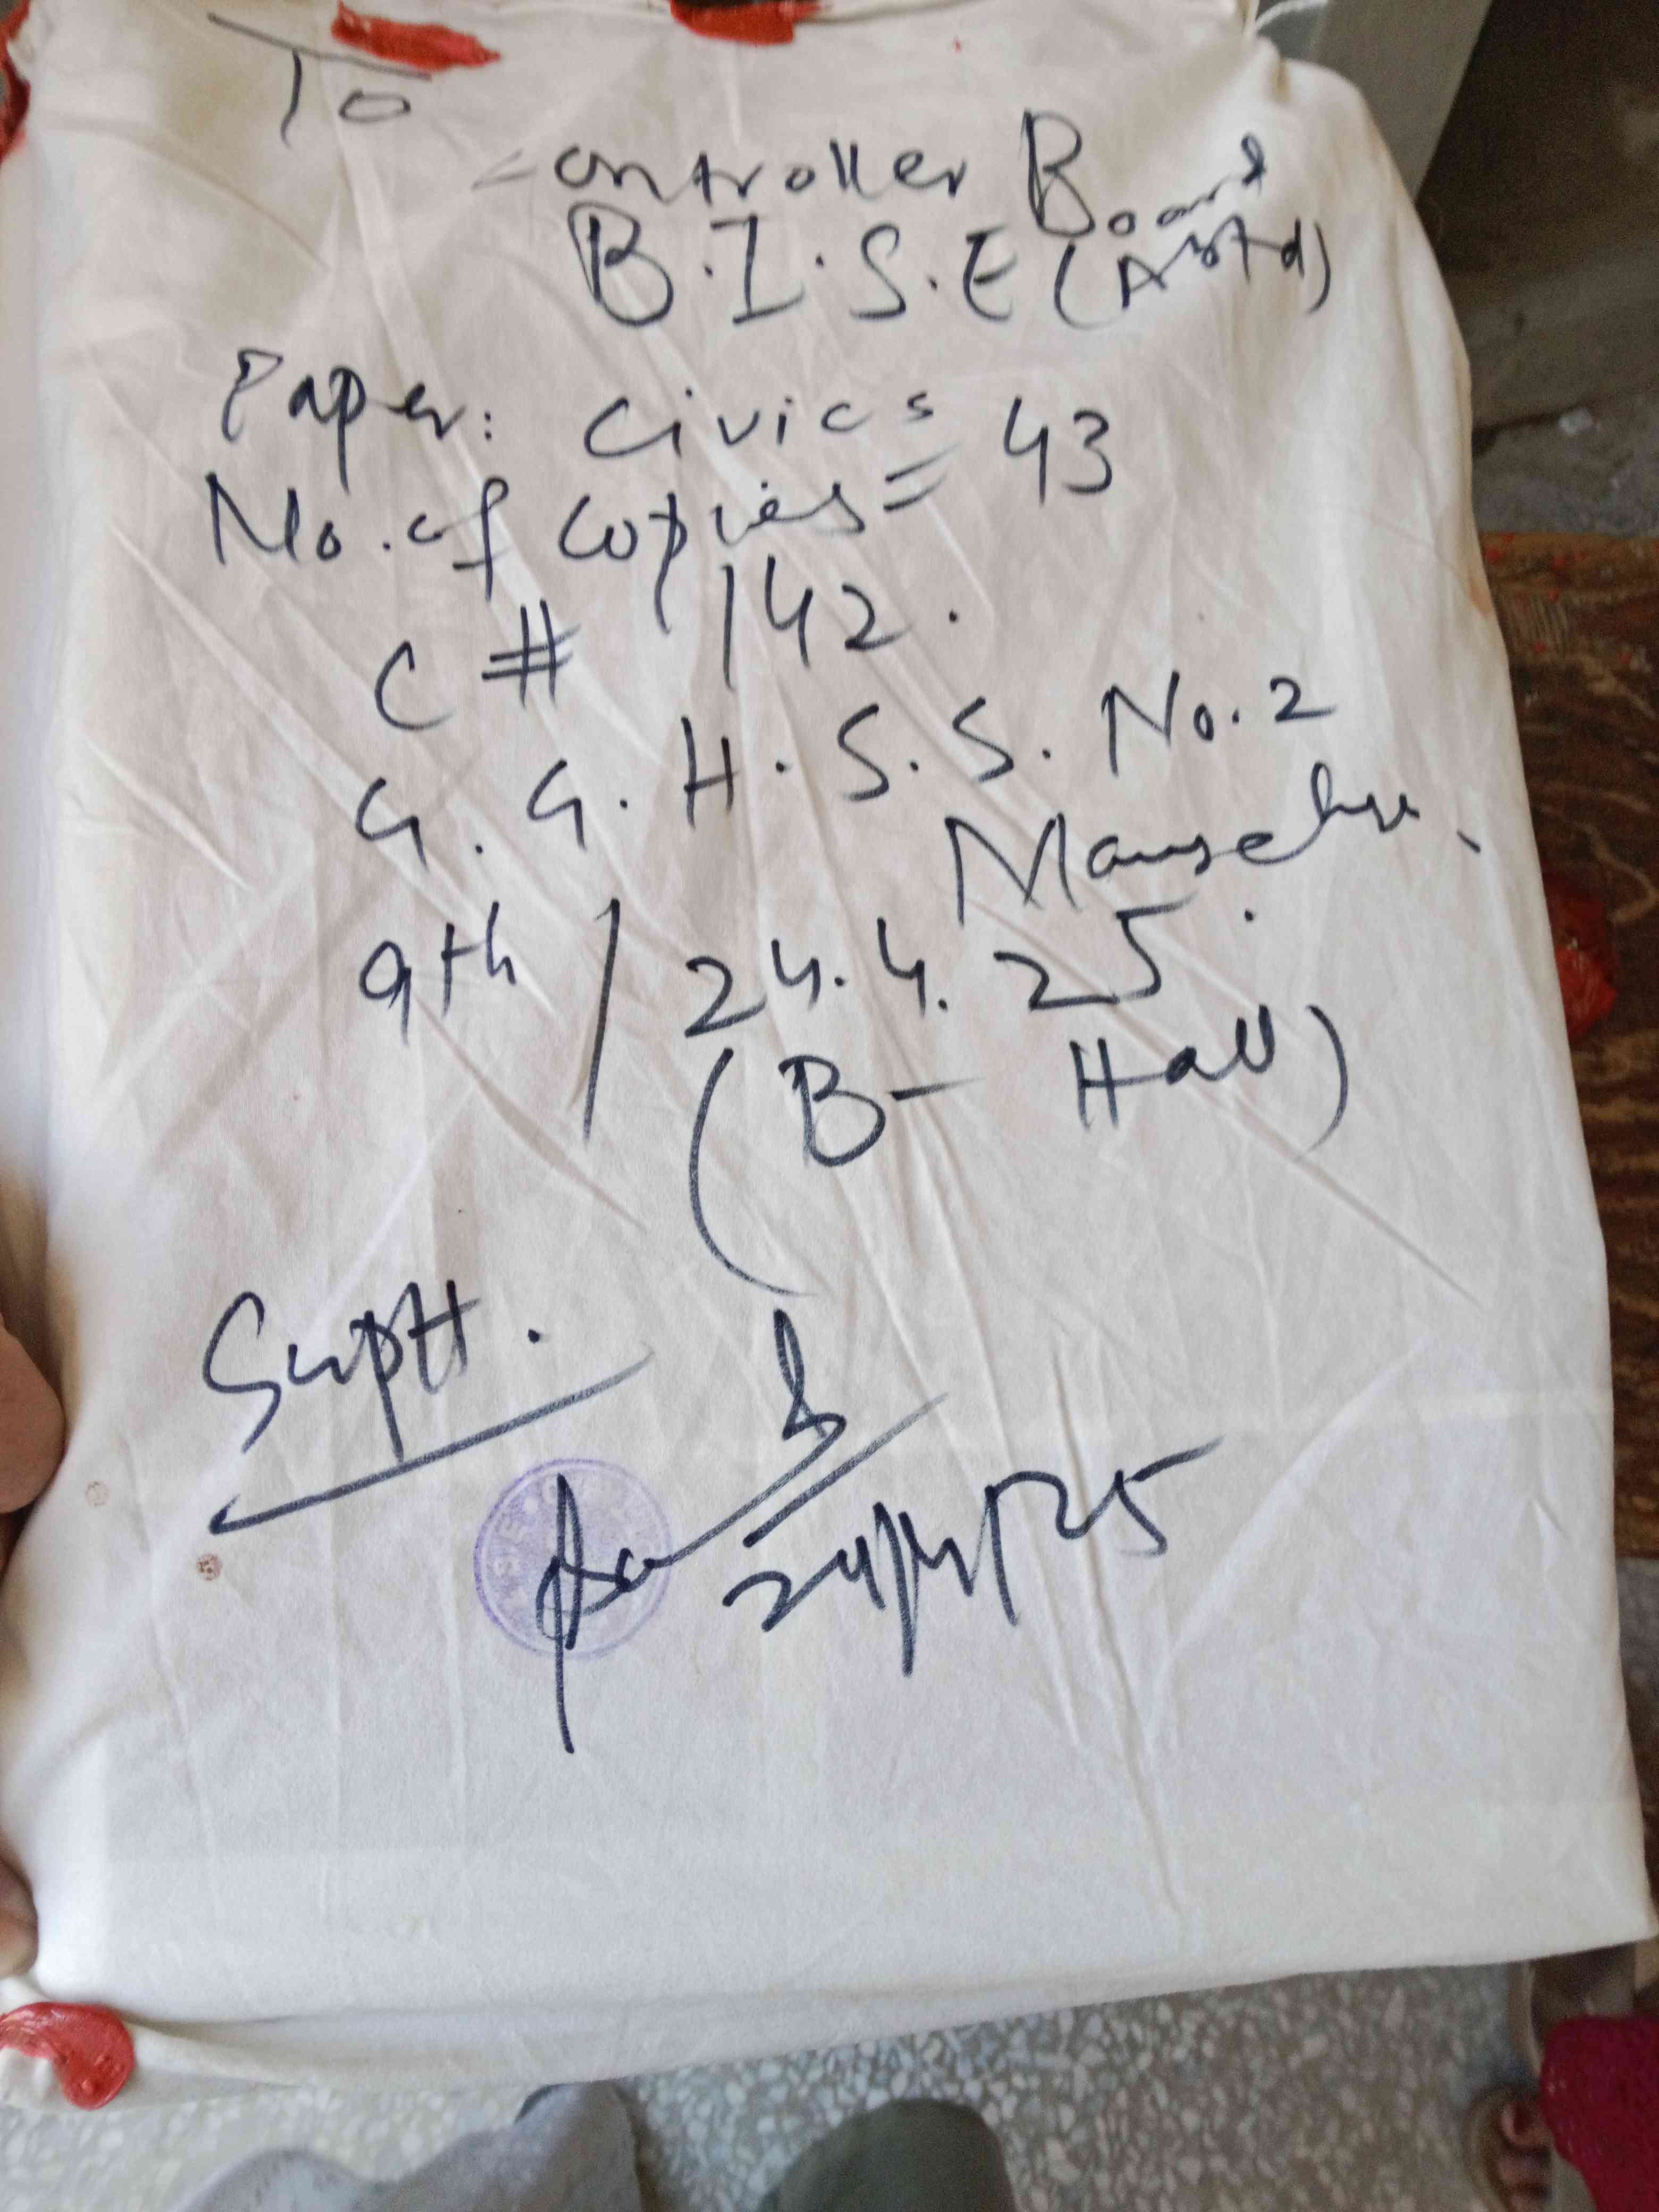 To
Controller Board
B.I.S.E (Abtd)
Paper: Civics
No. of Copies = 43
C # 142.
G.G.H.S.S. No.2
Mansehra.
9th / 24.4.25.
(B- Hall)
Suptt.
24/4/25